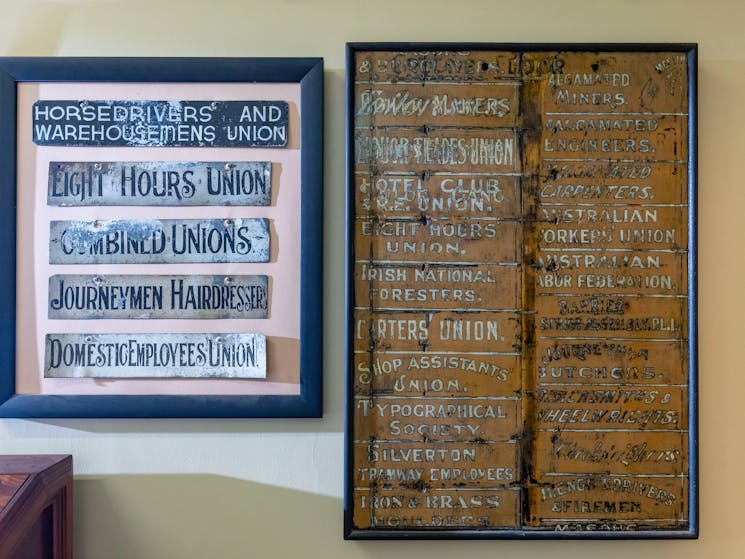 HORSEDRIVERS AND
WAREHOUSEMENS UNION
EIGHT HOURS UNION
COMBINED UNIONS
JOURNEYMEN HAIRDRESSER
DOMESTIC EMPLOYEES UNION
&
LIQUOR TRADES UNION
HOTEL CLUB
UNION.
EIGHT HOURS
UNION.
IRISH NATIONAL
FORESTERS.
CARTERS' UNION.
SHOP ASSISTANTS'
UNION.
TYPOGRAPHICAL
SOCIETY.
SILVERTON
TRAMWAY EMPLOYEES
IRON & BRASS
MOULDERS
ALGAMATED
MINERS.
AMALGAMATED
ENGINEERS.
CARPENTERS.
AUSTRALIAN
WORKERS' UNION
AUSTRALIAN
LABOR FEDERATION.
BARRIER
JOURNEYMEN
BUTCHERS.
&
WHEELWRIGHTS.
DRIVERS
& FIREMEN